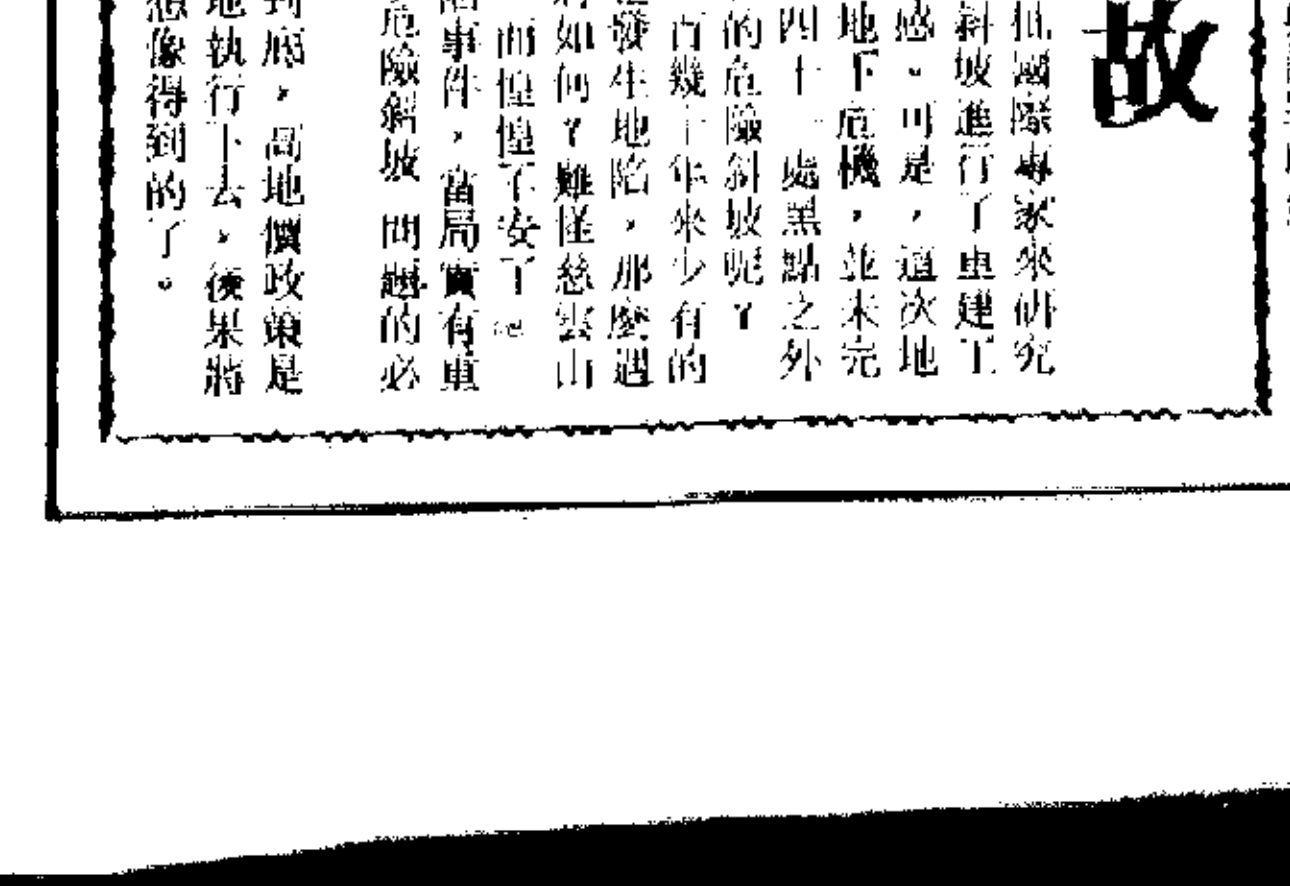 故
國際專家來研究
斜坡進行了重建工
感。可是,這次地
地下危機,並未完
四十一處黑點之外
的危險斜坡呢?
百幾十年來少有的
發生地陷,那麼遇
如何?難怪慈雲山
而惶惶不安了
事件,當局實有重
危險斜坡 問題的必
到底,高地價政策是
地執行下去,後果將
想像得到的了。